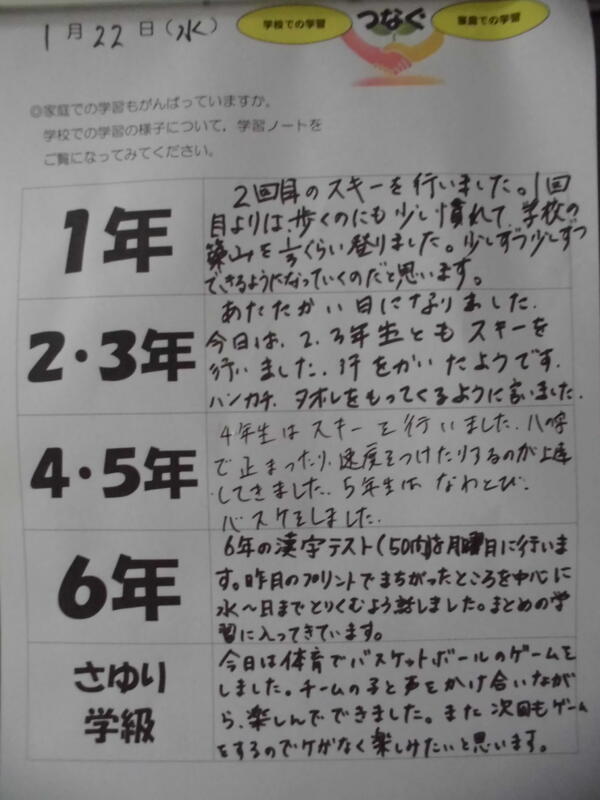 1月22日(水)
学校での学習
つなぐ
家庭での学習
◎家庭での学習もがんばっていますか。
学校での学習の様子について、学習ノートを
ご覧になってみてください。
1年
2回目のスキーを行いました。1回
目よりは、歩くのにも少し慣れて、学校の
築山を⅓くらい登りました。少しずつ少しずつ
できるようになっていくのだと思います。
2・3年
あたたかい日になりました。
今日は、2.3年生ともスキーを
行いました。汗をかいたようです。
ハンカチ、タオルをもってくるように言いました。
4・5年
4年生はスキーを行いました。ハの字
で止まったり、速度をつけたりするのが上達
してきました。5年生は、なわとび、
バスケをしました。
6年
6年の漢字テスト(50問)を月曜日に行いま
す。昨日のプリントでまちがったところを中心に
水〜日までとりくむよう話しました。まとめの学
習に入ってきています。
さゆり
学級
今日は体育でバスケットボールのゲームを
しました。チームの子と声をかけ合いなが
ら、楽しんでできました。また次回もゲーム
をするのでケガなく楽しみたいと思います。